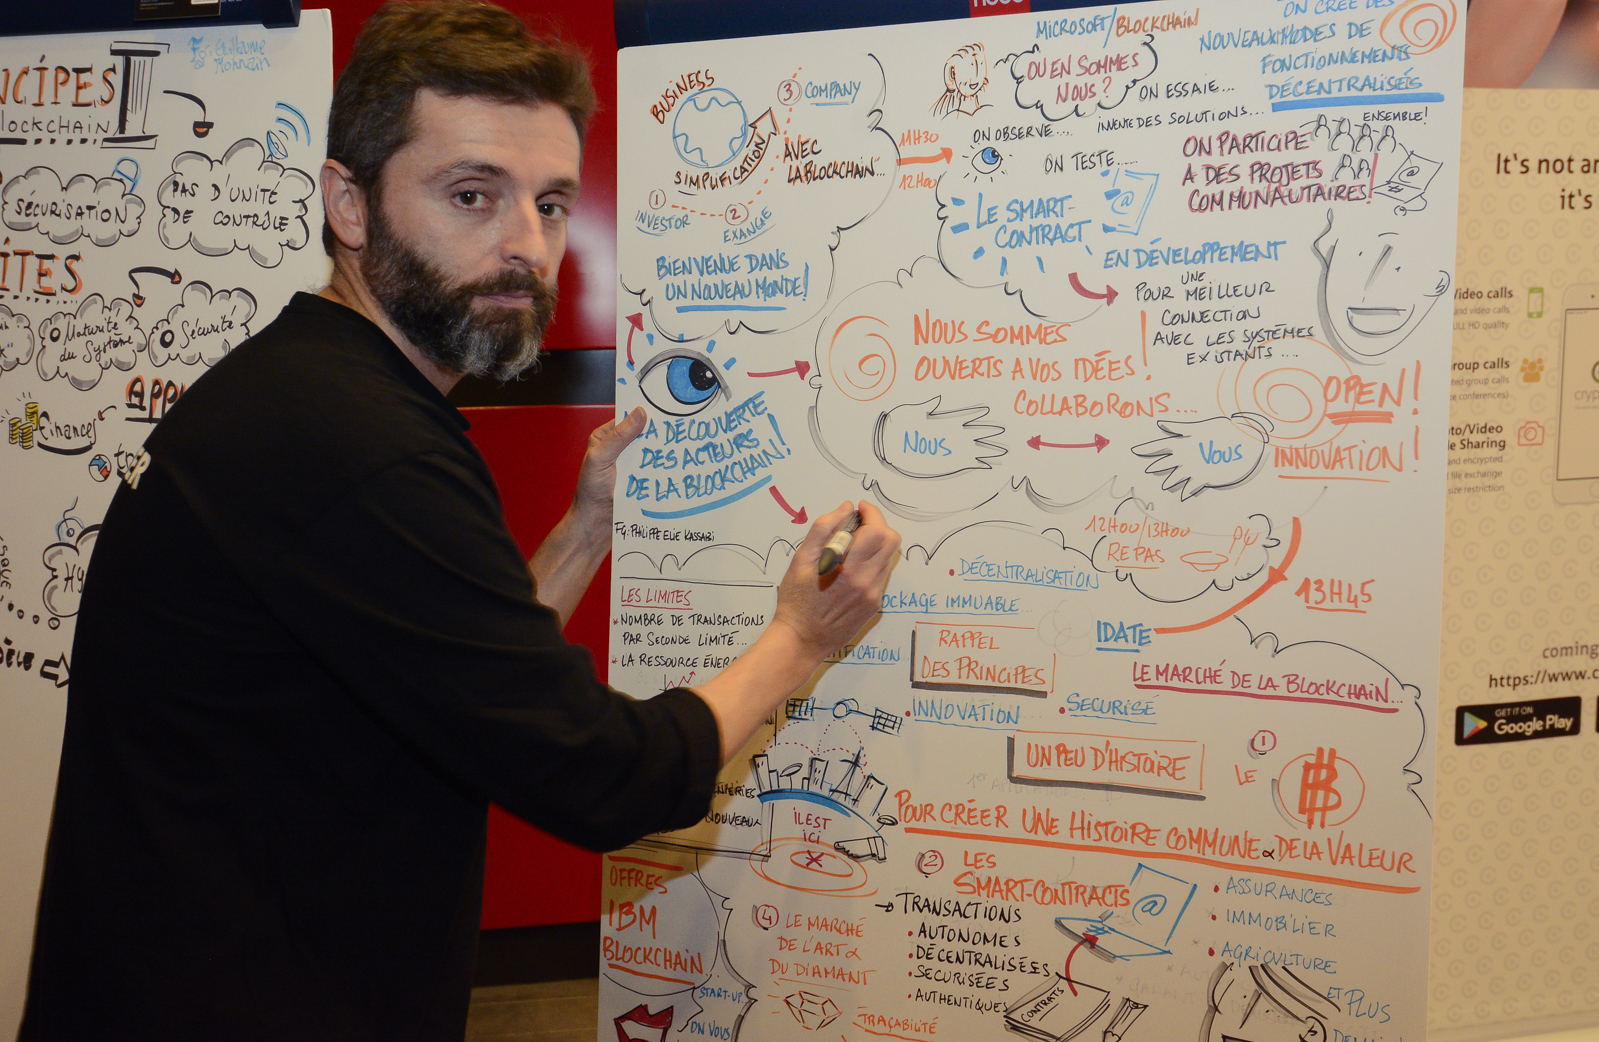 NCIPES
BLOCKCHAIN
Guillaume
Monnain
SÉCURISATION
PAS D'UNITÉ
DE CONTRÔLE
ITES
Maturité
du Système
Sécurité
APPL
Finances
Hy
DÈLE
MICROSOFT/BLOCKCHAIN
OU EN SOMMES
NOUS?
ON CRÉE DES
NOUVEAUX MODES DE
FONCTIONNEMENTS
DÉCENTRALISÉS
ON ESSAIE...
INVENTE DES SOLUTIONS...
ON OBSERVE....
ON TESTE.....
ENSEMBLE!
ON PARTICIPE
A DES PROJETS
COMMUNAUTAIRES!
BUSINESS
SIMPLIFICATION
3 COMPANY
AVEC
LA BLOCKCHAIN...
1
INVESTOR
2
EXANGE
11H30
12H00
LE SMART-
CONTRACT
@
BIENVENUE DANS
UN NOUVEAU MONDE!
EN DÉVELOPPEMENT
POUR UNE MEILLEUR
CONNECTION
AVEC LES SYSTÈMES
EXISTANTS....
NOUS SOMMES
OUVERTS A VOS IDÉES!
COLLABORONS....
NOUS
VOUS
OPEN!
INNOVATION!
LA DÉCOUVERTE
DES ACTEURS
DE LA BLOCKCHAIN!
FG: PHILIPPE ELIE KASSABI
12H00/13H00
REPAS
13H45
LES LIMITES
* NOMBRE DE TRANSACTIONS
PAR SECONDE LIMITÉ...
* LA RESSOURCE ÉNER
• DÉCENTRALISATION
OCKAGE IMMUABLE
IFICATION
RAPPEL
DES PRINCIPES
• INNOVATION
• SECURISÉ
IDATE
LE MARCHÉ DE LA BLOCKCHAIN...
UN PEU D'HISTOIRE
1
LE
B
POUR CRÉER UNE HISTOIRE COMMUNE & DE LA VALEUR
NOUVEAUX
IL EST
ICI
OFFRES
IBM
BLOCKCHAIN...
START-UP
ON VOUS
2 LES
SMART-CONTRACTS
→ TRANSACTIONS
• AUTONOMES
• DÉCENTRALISÉES
• SECURISÉES
• AUTHENTIQUES
CONTRATS
@
• ASSURANCES
• IMMOBILIER
• AGRICULTURE
ET PLUS
4 LE MARCHÉ
DE L'ART &
DU DIAMANT
TRAÇABILITÉ
It's not an
it's
Video calls
and video calls
ULL HD quality
roup calls
ted group calls
e conferences)
to/Video
e Sharing
and encrypted
file exchange
size restriction
cryp
coming
https://www.c
GET IT ON
Google Play